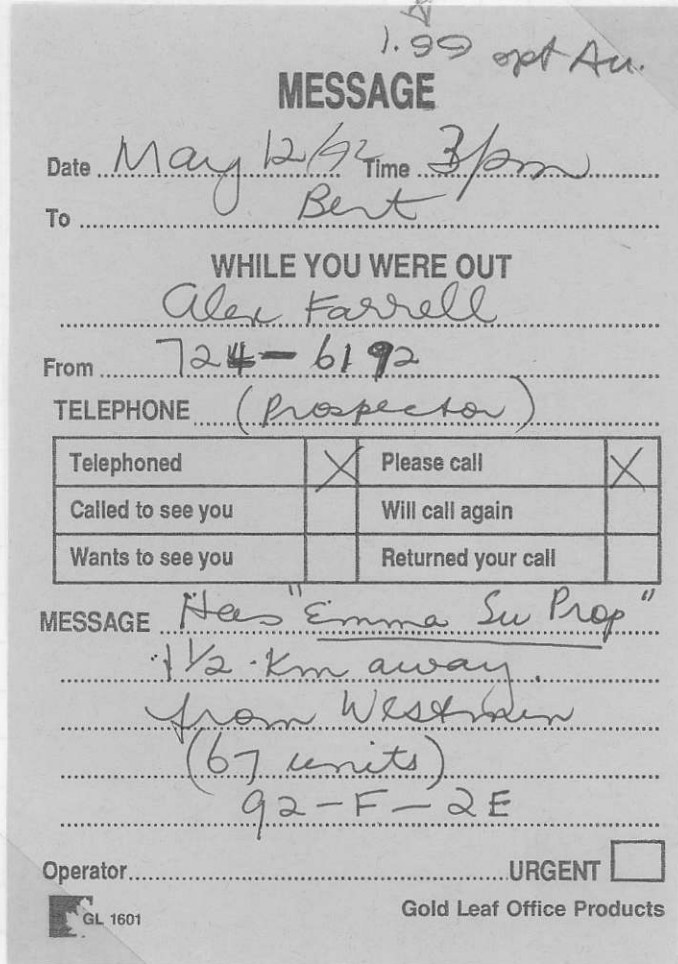 1.99 opt Au.
MESSAGE
Date May 12/92 Time 3pm
To Bert
WHILE YOU WERE OUT
Alex Farrell
From 724-6192
TELEPHONE (Prospector)
Telephoned X Please call X
Called to see you Will call again
Wants to see you Returned your call
MESSAGE Has "Emma Su Prop"
1 1/2 Km away.
from Westmin
(67 units)
92-F-2E
Operator URGENT
GL 1601 Gold Leaf Office Products